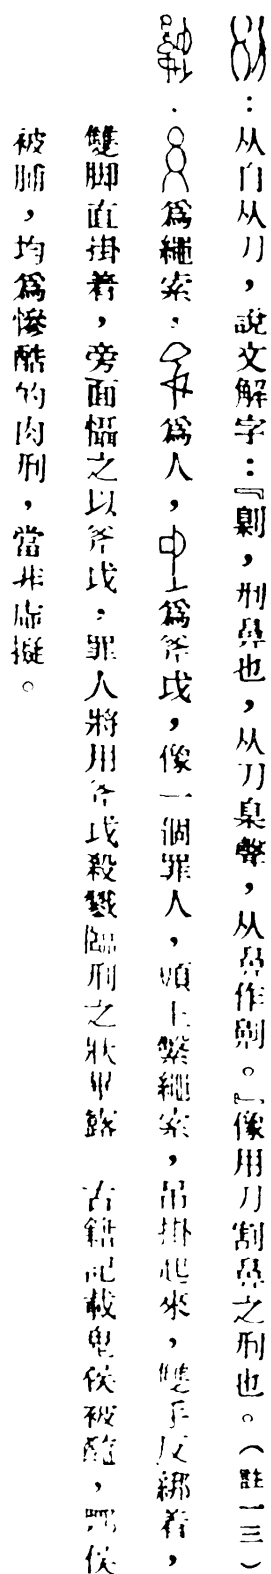 ：从自从刀，說文解字：『劓，刑鼻也，从刀臬聲，从鼻作劓。』像用刀割鼻之刑也。（註一三）
．爲繩索，爲人，爲斧戉，像一個罪人，頭上繫繩索，吊掛起來，雙手反綁着，
雙脚直掛着，旁面懾之以斧戉，罪人將用斧戉殺戮臨刑之狀畢露　古籍記載鬼侯被醢，鄂侯
被脯，均爲慘酷的肉刑，當非虛擬。